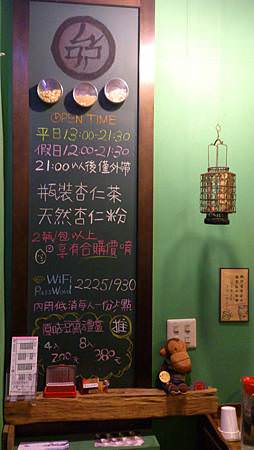 OPEN TIME
平日13:00-21:30
假日12:00-21:30
21:00以後僅外帶
瓶裝杏仁茶
天然杏仁粉
2瓶/包以上
享有合購價唷
WiFi
PassWord 22251930
內用低消每人一份甜點
豆腐禮盒 推
4入 8入
200元 380元